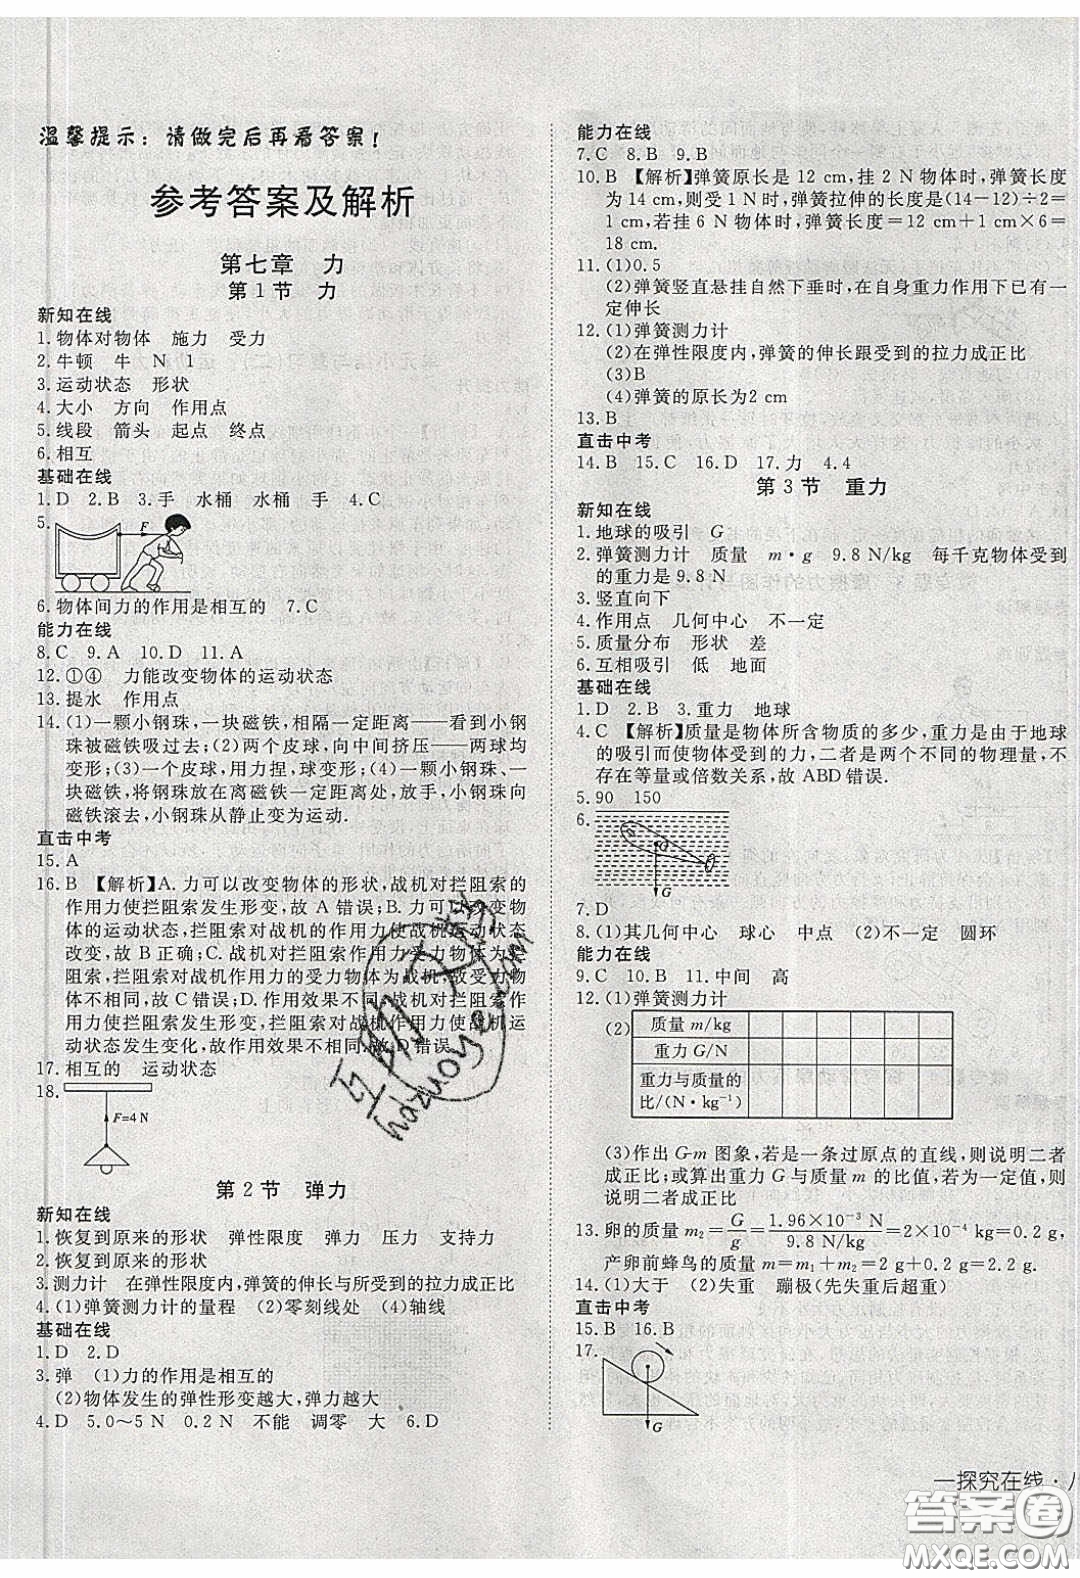 温馨提示：请做完后再看答案！
参考答案及解析
第七章　力
第1节　力
新知在线
1.物体对物体　施力　受力
2.牛顿　牛　N　1
3.运动状态　形状
4.大小　方向　作用点
5.线段　箭头　起点　终点
6.相互
基础在线
1.D　2.B　3.手　水桶　水桶　手　4.C
5.
F
6.物体间力的作用是相互的　7.C
能力在线
8.C　9.A　10.D　11.A
12.①④　力能改变物体的运动状态
13.提水　作用点
14.(1)一颗小钢珠，一块磁铁，相隔一定距离——看到小钢
珠被磁铁吸过去；(2)两个皮球，向中间挤压——两球均
变形；(3)一个皮球，用力捏，球变形；(4)一颗小钢珠、一
块磁铁，将钢珠放在离磁铁一定距离处，放手，小钢珠向
磁铁滚去，小钢珠从静止变为运动.
直击中考
15.A
16.B　【解析】A.力可以改变物体的形状，战机对拦阻索的
作用力使拦阻索发生形变，故A错误；B.力可以改变物
体的运动状态，拦阻索对战机的作用力使战机运动状态
改变，故B正确；C.战机对拦阻索作用力的受力物体为拦
阻索，拦阻索对战机作用力的受力物体为战机，故受力物
体不相同，故C错误；D.作用效果不同，战机对拦阻索的
作用力使拦阻索发生形变，拦阻索对战机作用力使战机运
动状态发生变化，故作用效果不同，故D错误.
17.相互的　运动状态
18.
F=4 N
第2节　弹力
新知在线
1.恢复到原来的形状　弹性限度　弹力　压力　支持力
2.恢复到原来的形状
3.测力计　在弹性限度内，弹簧的伸长与所受到的拉力成正比
4.(1)弹簧测力计的量程　(2)零刻线处　(4)轴线
基础在线
1.D　2.D
3.弹　(1)力的作用是相互的
(2)物体发生的弹性形变越大，弹力越大
4.D　5.0～5 N　0.2 N　不能　调零　大　6.D
能力在线
7.C　8.B　9.B
10.B　【解析】弹簧原长是12 cm，挂2 N物体时，弹簧长度
为14 cm，则受1 N时，弹簧拉伸的长度是(14－12)÷2＝
1(cm).若挂6 N物体时，弹簧长度＝12 cm＋1 cm×6＝
18 cm.
11.(1)0.5
(2)弹簧竖直悬挂自然下垂时，在自身重力作用下已有一
定伸长
12.(1)弹簧测力计
(2)在弹性限度内，弹簧的伸长跟受到的拉力成正比
(3)B
(4)弹簧的原长为2 cm
13.B
直击中考
14.B　15.C　16.D　17.力　4.4
第3节　重力
新知在线
1.地球的吸引　G
2.弹簧测力计　质量　m·g　9.8 N/kg　每千克物体受到
的重力是9.8 N
3.竖直向下
4.作用点　几何中心　不一定
5.质量分布　形状　差
6.互相吸引　低　地面
基础在线
1.D　2.B　3.重力　地球
4.C　【解析】质量是物体所含物质的多少，重力是由于地球
的吸引而使物体受到的力，二者是两个不同的物理量，不
存在等量或倍数关系，故ABD错误.
5.90　150
6.
O
G
7.D
8.(1)其几何中心　球心　中点　(2)不一定　圆环
能力在线
9.C　10.B　11.中间　高
12.(1)弹簧测力计
(2)
质量 m/kg
重力 G/N
重力与质量的
比/(N·kg⁻¹)
(3)作出G-m图象，若是一条过原点的直线，则说明二者
成正比；或算出重力G与质量m的比值，若为一定值，则
说明二者成正比
13.卵的质量 m₂＝G/g＝1.96×10⁻³ N/9.8 N/kg＝2×10⁻⁴ kg＝0.2 g，
产卵前蜂鸟的质量 m＝m₁＋m₂＝2 g＋0.2 g＝2.2 g.
14.(1)大于　(2)失重　蹦极(先失重后超重)
直击中考
15.B　16.B
17.
G
一探究在线·八
互助文档
hdzuoye.com
答案圈
MXQE.COM